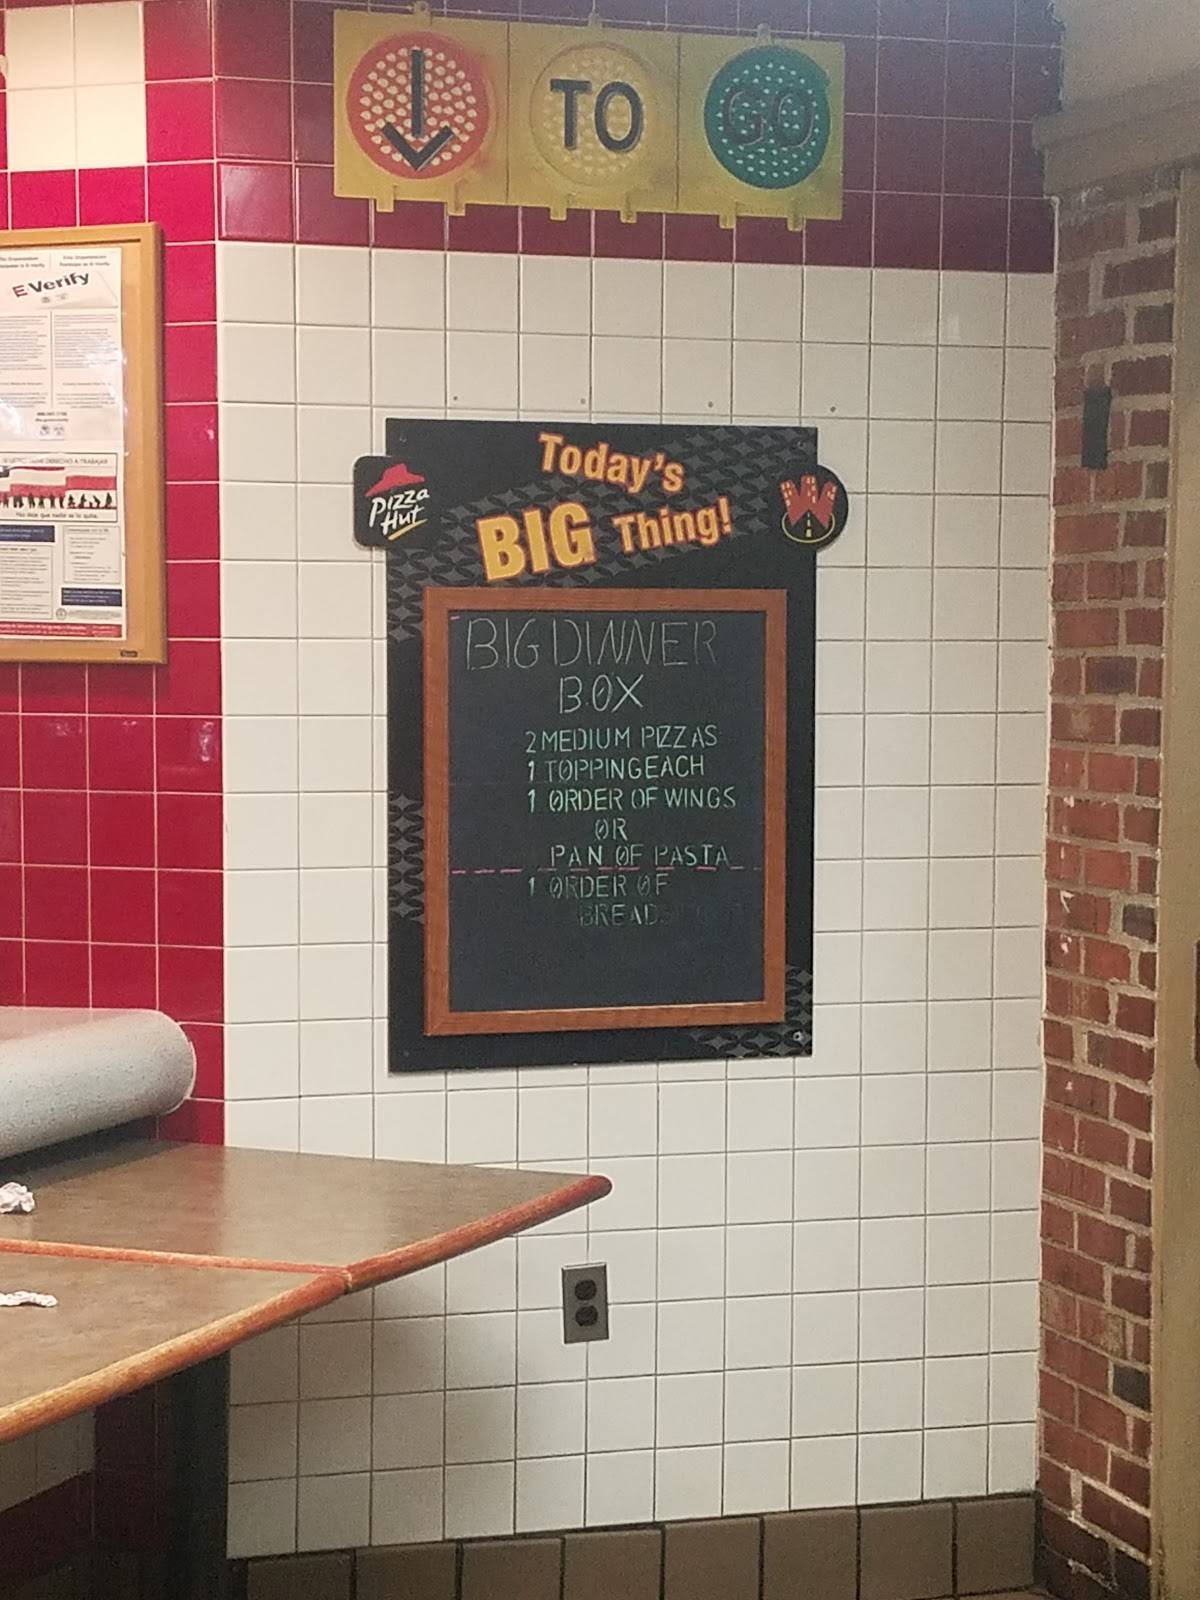 TO
GO
E Verify
Pizza
Hut
Today's
BIG Thing!
W
BIG DINNER
BOX
2 MEDIUM PIZZAS
1 TOPPING EACH
1 ORDER OF WINGS
OR
PAN OF PASTA
1 ORDER OF
BREAD